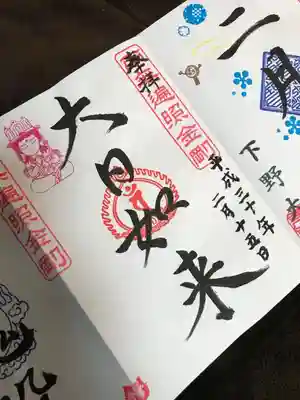 二月
下野大
奉拝
遍照金剛
平成三十年
二月十五日
大日如来
遍照金剛